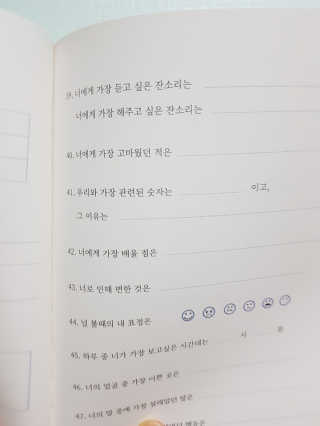 39. 너에게 가장 듣고 싶은 잔소리는
너에게 가장 해주고 싶은 잔소리는
40. 너에게 가장 고마웠던 적은
41. 우리와 가장 관련된 숫자는 이고,
그 이유는
42. 너에게 가장 배울 점은
43. 너로 인해 변한 것은
44. 널 볼때의 내 표정은
45. 하루 중 너가 가장 보고싶은 시간대는 시 분
46. 너의 얼굴 중 가장 이쁜 곳은
47. 너의 말 중에 가장 설레었던 말은